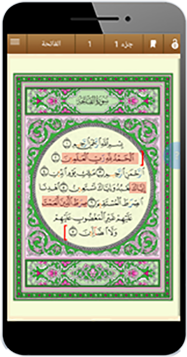 جزء 1 1 الفاتحة
سورة الفاتحة
بِسْمِ اللَّهِ الرَّحْمَٰنِ الرَّحِيمِ
الْحَمْدُ لِلَّهِ رَبِّ الْعَٰلَمِينَ
الرَّحْمَٰنِ الرَّحِيمِ مَٰلِكِ يَوْمِ الدِّينِ
إِيَّاكَ نَعْبُدُ وَإِيَّاكَ نَسْتَعِينُ اهْدِنَا
الصِّرَٰطَ الْمُسْتَقِيمَ صِرَٰطَ الَّذِينَ أَنْعَمْتَ
عَلَيْهِمْ غَيْرِ الْمَغْضُوبِ عَلَيْهِمْ
وَلَا الضَّالِّينَ